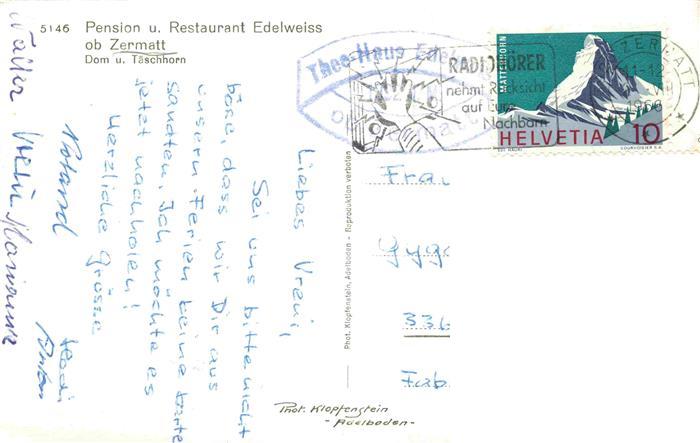 5146 Pension u. Restaurant Edelweiss
ob Zermatt
Dom u. Täschhorn
Thee-Haus Edel
ob Zermatt
RADIOHÖRER
nehmt Rücksicht
auf Eure
Nachbarn
ZERMATT
11-12
1966
MATTERHORN
HELVETIA 10
COURVOISIER S.A.
Liebes Vreni,
Sei uns bitte nicht
böse, dass wir Dir aus
unsern Ferien keine Karte
sandten. Ich möchte es
jetzt nachholen!
Herzliche Grüsse
Roland
Heidi
Anton
Walter
Marianne
Frau
Gyg
336
Fab
Phot. Klopfenstein, Adelboden - Reproduktion verboten
Phot. Klopfenstein
- Adelboden -